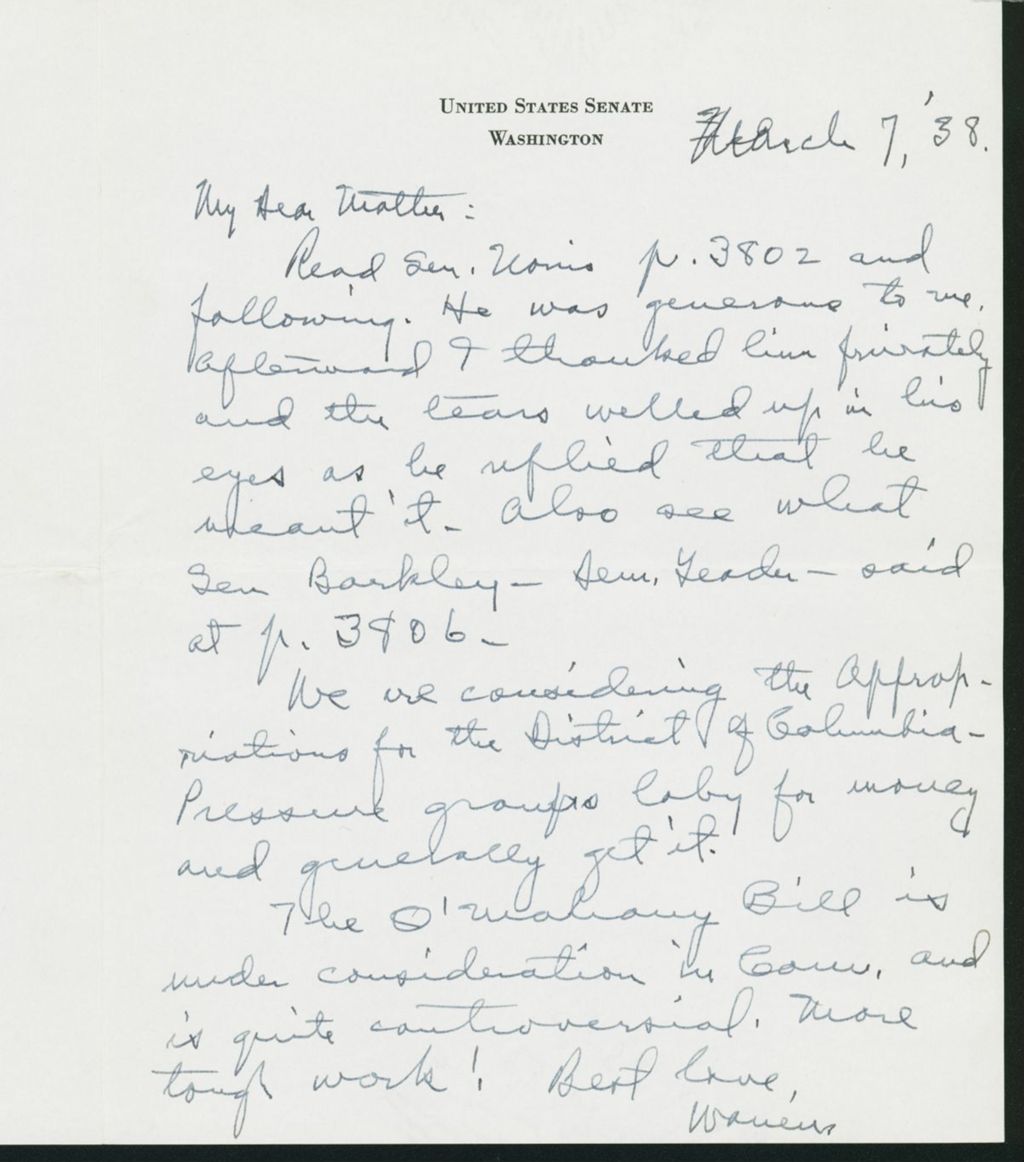 UNITED STATES SENATE
WASHINGTON
March 7, '38.
My Dear Mother:
Read Sen. Norris p. 3802 and
following. He was generous to me.
Afterward I thanked him privately
and the tears welled up in his
eyes as he replied that he
meant it - Also see what
Sen Barkley - Dem. Leader - said
at p. 3806 -
We are considering the Approp-
riations for the District of Columbia -
Pressure groups loby for money
and generally get it.
The O'Mahony Bill is
under consideration in Com. and
is quite controversial. More
tough work! Best love,
Warren